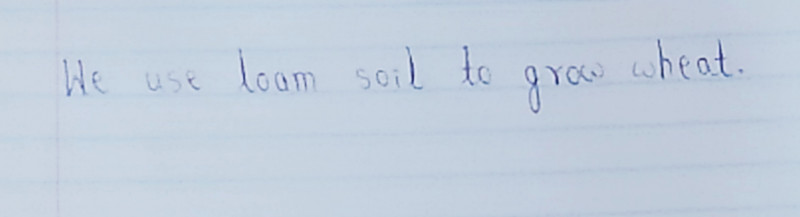 We use loam soil to grow wheat.